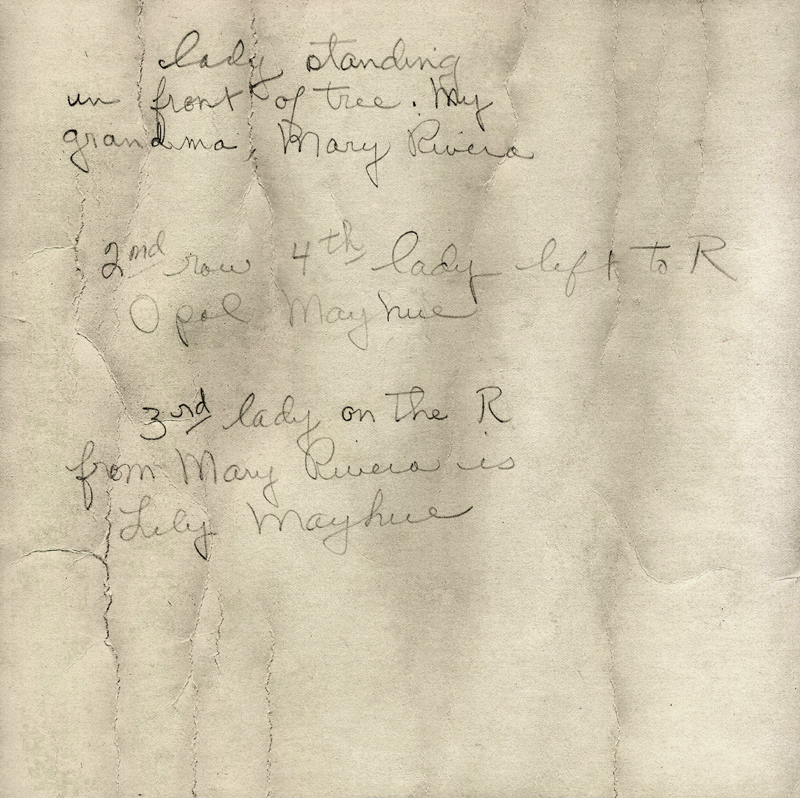 lady standing
in front of tree. My
grandma, Mary Rivera
2nd row 4th lady left to R
Opal Mayhue
3rd lady on the R
from Mary Rivera is
Lily Mayhue